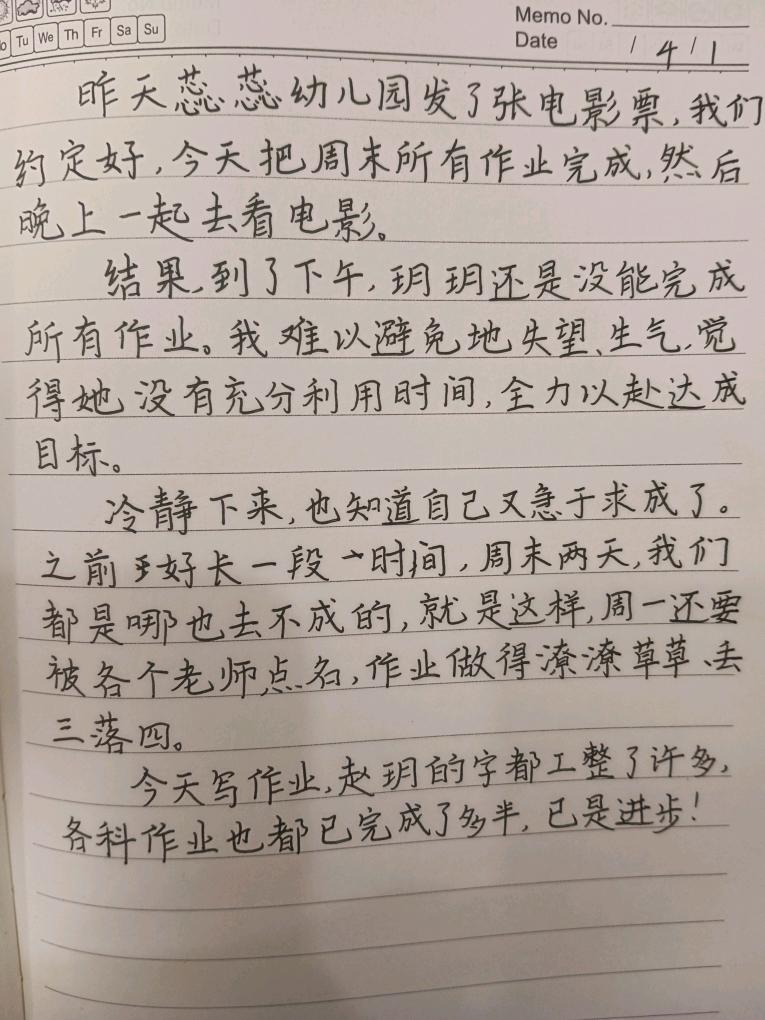 Memo No.
Tu We Th Fr Sa Su
Date / 4 / 1
昨天蕊蕊幼儿园发了张电影票，我们
约定好，今天把周末所有作业完成，然后
晚上一起去看电影。
结果，到了下午，玥玥还是没能完成
所有作业。我难以避免地失望、生气，觉
得她没有充分利用时间，全力以赴达成
目标。
冷静下来，也知道自己又急于求成了。
之前好长一段时间，周末两天，我们
都是哪也去不成的，就是这样，周一还要
被各个老师点名，作业做得潦潦草草、丢
三落四。
今天写作业，赵玥的字都工整了许多，
各科作业也都已完成了多半，已是进步！